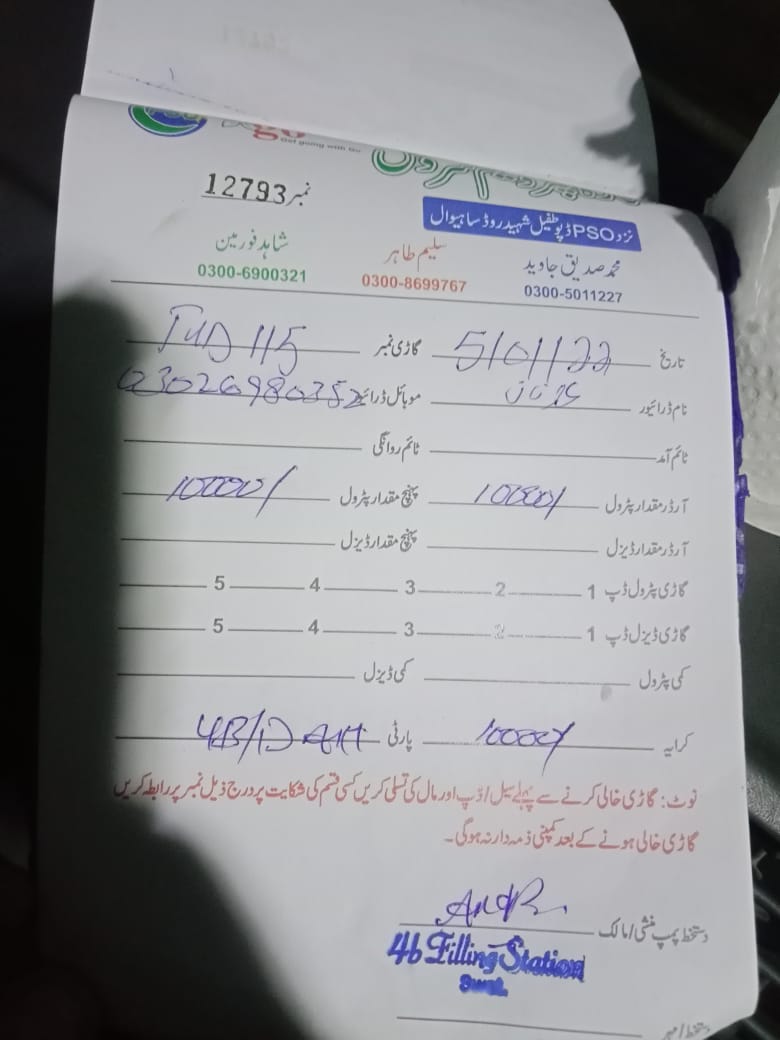 Get going with Go
نمبر 12793
نزد PSO ڈپو طفیل شہید روڈ ساہیوال
محمد صدیق جاوید سلیم طاہر شاہد فورمین
0300-5011227 0300-8699767 0300-6900321
تاریخ 5/01/22 گاڑی نمبر 115
نام ڈرائیور موبائل ڈرائیور 03026980352
ٹائم آمد ٹائم روانگی
آرڈر مقدار پٹرول 10000/ پہنچ مقدار پٹرول 10000/
آرڈر مقدار ڈیزل پہنچ مقدار ڈیزل
گاڑی پٹرول ڈپ 1 2 3 4 5
گاڑی ڈیزل ڈپ 1 2 3 4 5
کمی پٹرول کمی ڈیزل
کرایہ 10000/ پارٹی 4B/D
نوٹ: گاڑی خالی کرنے سے پہلے سیل/ڈپ اور مال کی تسلی کریں کسی قسم کی شکایت پر درج ذیل نمبر پر رابطہ کریں
گاڑی خالی ہونے کے بعد کمپنی ذمہ دار نہ ہوگی۔
دستخط پمپ منشی/مالک
4b Filling Station
دستخط/مہر